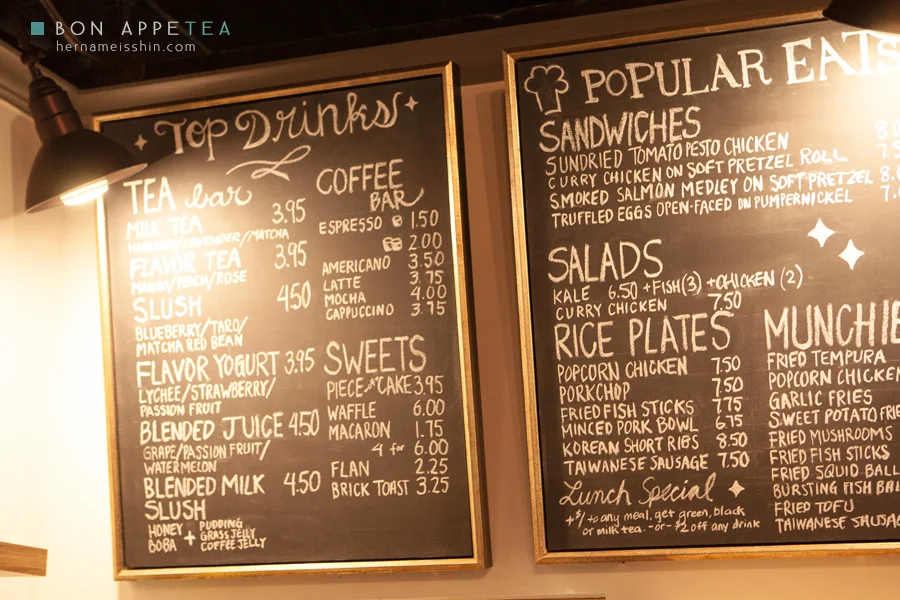 BON APPETEA
hernameisshin.com
Top Drinks
TEA bar
MILK TEA 3.95
/LAVENDER/MATCHA
FLAVOR TEA 3.95
MANGO/PEACH/ROSE
SLUSH 4.50
BLUEBERRY/TARO/
MATCHA RED BEAN
FLAVOR YOGURT 3.95
LYCHEE/STRAWBERRY/
PASSION FRUIT
BLENDED JUICE 4.50
GRAPE/PASSION FRUIT/
WATERMELON
BLENDED MILK 4.50
SLUSH
HONEY + PUDDING
BOBA GRASS JELLY
COFFEE JELLY
COFFEE
BAR
ESPRESSO 1.50
2.00
AMERICANO 3.50
LATTE 3.75
MOCHA 4.00
CAPPUCCINO 3.75
SWEETS
PIECE OF CAKE 3.95
WAFFLE 6.00
MACARON 1.75
4 for 6.00
FLAN 2.25
BRICK TOAST 3.25
POPULAR EATS
SANDWICHES
SUNDRIED TOMATO PESTO CHICKEN 8.0
CURRY CHICKEN ON SOFT PRETZEL ROLL 7.5
SMOKED SALMON MEDLEY ON SOFT PRETZEL 8.0
TRUFFLED EGGS OPEN-FACED ON PUMPERNICKEL 7.
SALADS
KALE 6.50 +FISH(3) +CHICKEN (2)
CURRY CHICKEN 7.50
RICE PLATES
POPCORN CHICKEN 7.50
PORKCHOP 7.50
FRIED FISH STICKS 7.75
MINCED PORK BOWL 6.75
KOREAN SHORT RIBS 8.50
TAIWANESE SAUSAGE 7.50
Lunch Special
+$1 to any meal, get green, black
or milk tea. -or- $2 off any drink
MUNCHIE
FRIED TEMPURA
POPCORN CHICKEN
GARLIC FRIES
SWEET POTATO FRIE
FRIED MUSHROOMS
FRIED FISH STICKS
FRIED SQUID BALL
BURSTING FISH BAL
FRIED TOFU
TAIWANESE SAUSAG